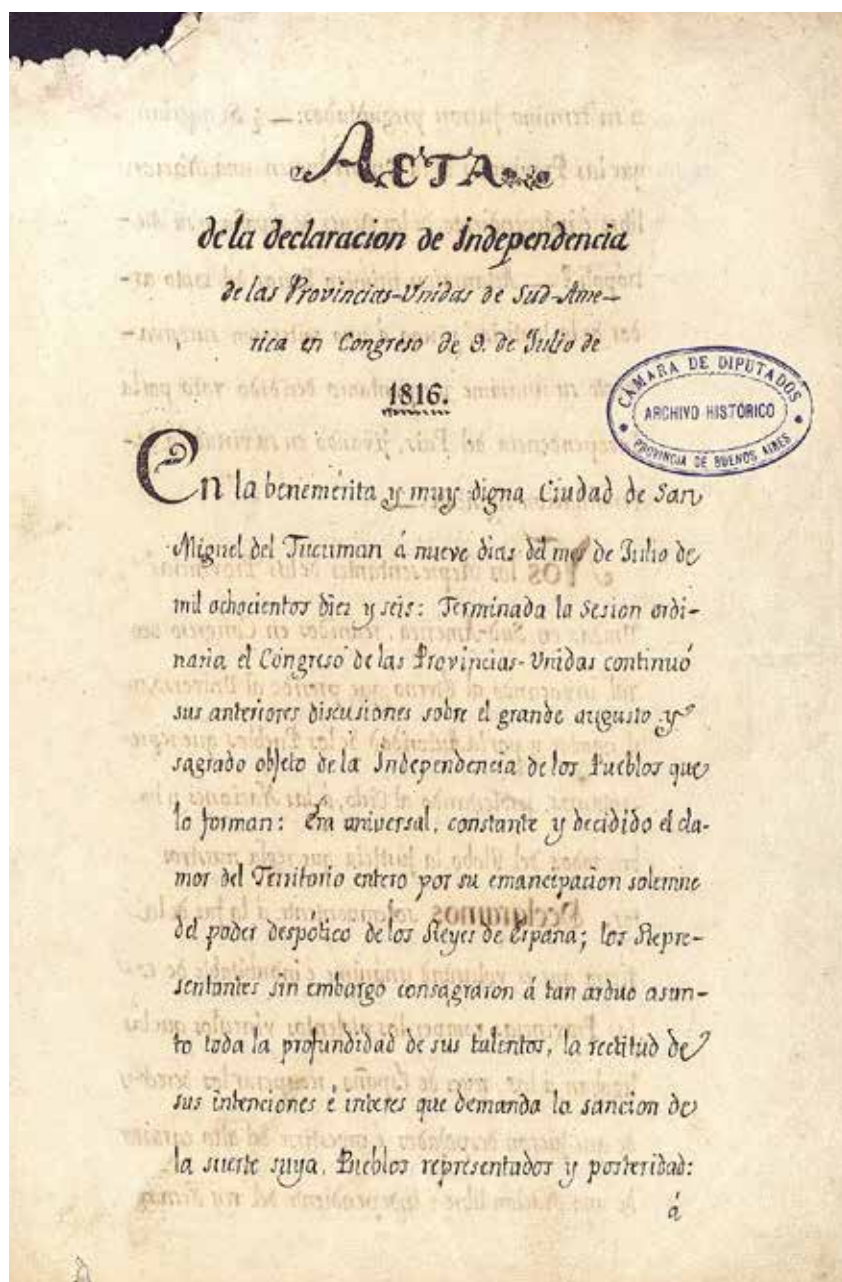 ACTA
de la declaracion de independencia
de las Provincias-Unidas de Sud-Ame-
rica en Congreso de 9. de Julio de
1816.
CÁMARA DE DIPUTADOS
ARCHIVO HISTÓRICO
PROVINCIA DE BUENOS AIRES
En la benemérita y muy digna Ciudad de San
Miguel del Tucuman á nueve dias del mes de Julio de
mil ochocientos diez y seis: Terminada la Sesion ordi-
naria el Congreso de las Provincias-Unidas continuó
sus anteriores discusiones sobre el grande augusto y
sagrado objeto de la Independencia de los Pueblos que
lo forman: Era universal, constante y decidido el cla-
mor del Territorio entero por su emancipacion solemne
del poder despótico de los Reyes de España; los Repre-
sentantes sin embargo consagraron á tan arduo asun-
to toda la profundidad de sus talentos, la rectitud de
sus intenciones é interes que demanda la sancion de
la suerte suya, Pueblos representados y posteridad:
á